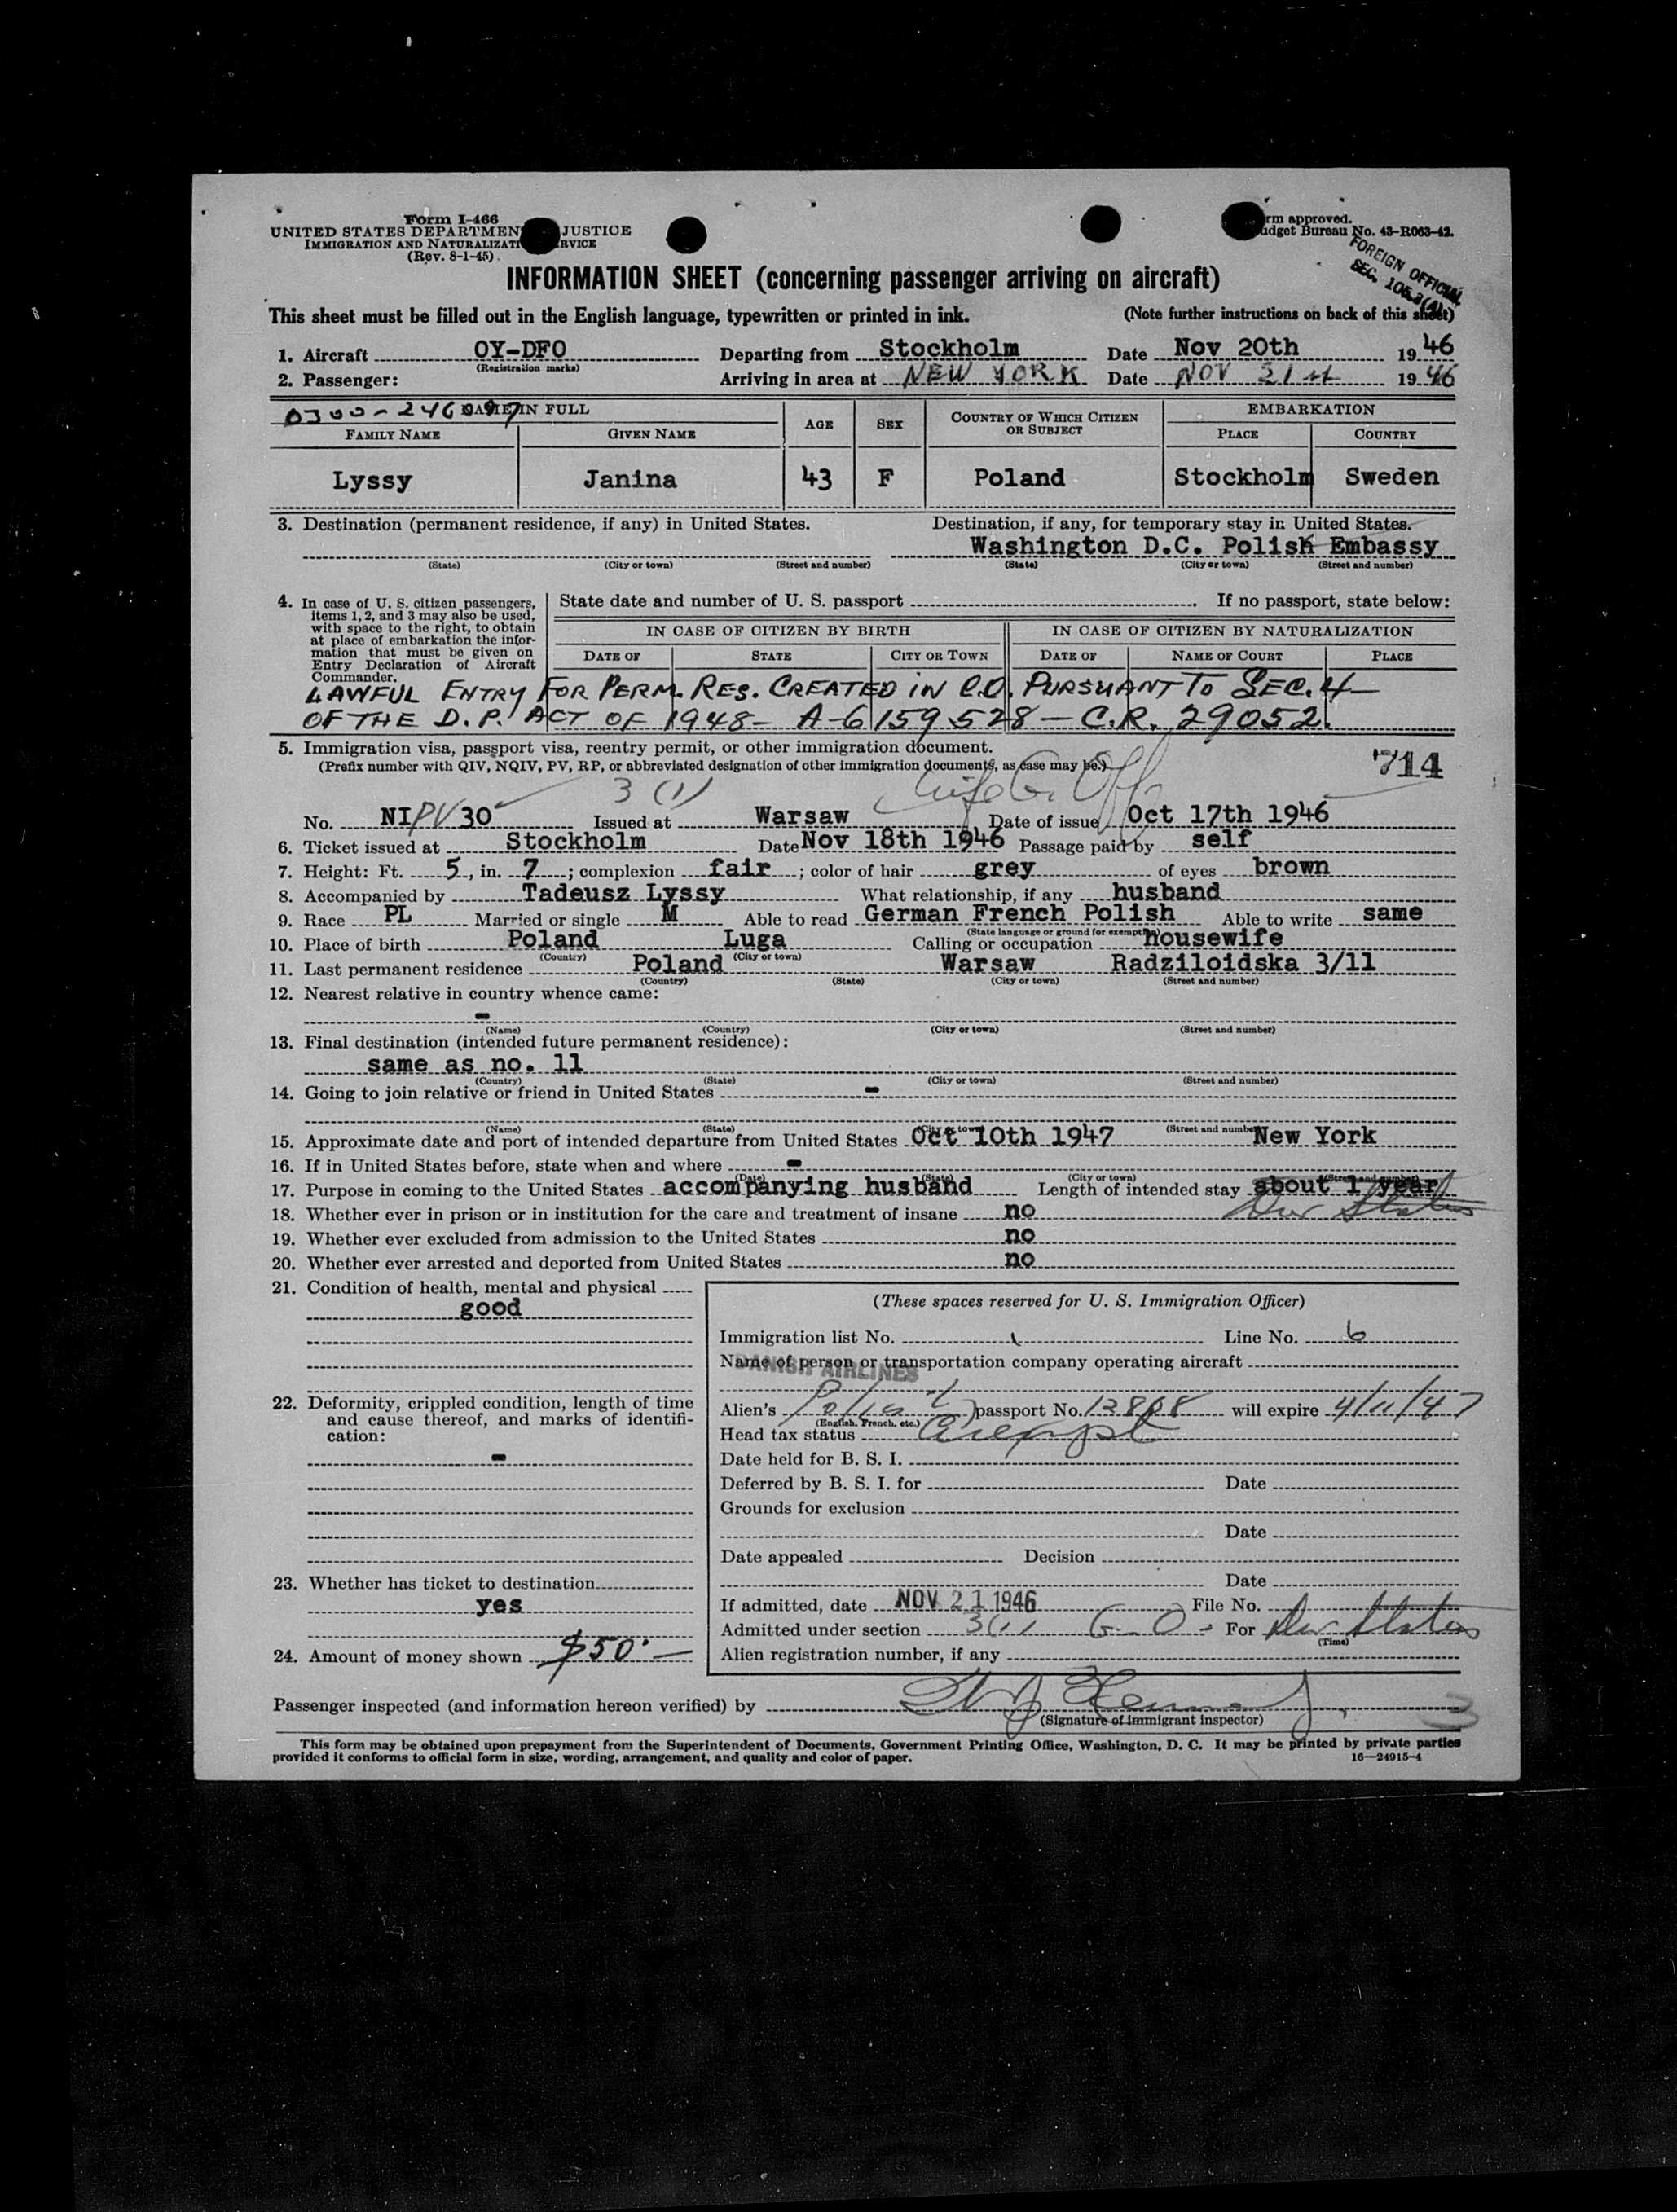 Form I-466
UNITED STATES DEPARTMEN JUSTICE
IMMIGRATION AND NATURALIZATI RVICE
(Rev. 8-1-45)
rm approved.
udget Bureau No. 43-R063-42.
FOREIGN OFFICIAL
SEC.
INFORMATION SHEET (concerning passenger arriving on aircraft)
This sheet must be filled out in the English language, typewritten or printed in ink. (Note further instructions on back of this sheet)
1. Aircraft OY-DFO Departing from Stockholm Date Nov 20th 1946
(Registration marks)
2. Passenger: Arriving in area at NEW YORK Date NOV 21st 1946
0300-246097 NAME IN FULL AGE SEX COUNTRY OF WHICH CITIZEN OR SUBJECT EMBARKATION
FAMILY NAME GIVEN NAME PLACE COUNTRY
Lyssy Janina 43 F Poland Stockholm Sweden
3. Destination (permanent residence, if any) in United States. Destination, if any, for temporary stay in United States.
Washington D.C. Polish Embassy
(State) (City or town) (Street and number) (State) (City or town) (Street and number)
4. In case of U. S. citizen passengers, items 1, 2, and 3 may also be used, with space to the right, to obtain at place of embarkation the information that must be given on Entry Declaration of Aircraft Commander.
State date and number of U. S. passport If no passport, state below:
IN CASE OF CITIZEN BY BIRTH IN CASE OF CITIZEN BY NATURALIZATION
DATE OF STATE CITY OR TOWN DATE OF NAME OF COURT PLACE
LAWFUL ENTRY FOR PERM. RES. CREATED IN C.O. PURSUANT TO SEC. 4-
OF THE D.P. ACT OF 1948- A-6159528-C.R. 29052.
5. Immigration visa, passport visa, reentry permit, or other immigration document.
(Prefix number with QIV, NQIV, PV, RP, or abbreviated designation of other immigration documents, as case may be.)
714
3 (1)
No. NIPV 30 Issued at Warsaw Date of issue Oct 17th 1946
6. Ticket issued at Stockholm Date Nov 18th 1946 Passage paid by self
7. Height: Ft. 5, in. 7; complexion fair; color of hair grey of eyes brown
8. Accompanied by Tadeusz Lyssy What relationship, if any husband
9. Race PL Married or single M Able to read German French Polish Able to write same
(State language or ground for exemption)
10. Place of birth Poland Luga Calling or occupation housewife
(Country) (City or town)
11. Last permanent residence Poland Warsaw Radziloidska 3/11
(Country) (State) (City or town) (Street and number)
12. Nearest relative in country whence came:
-
(Name) (Country) (City or town) (Street and number)
13. Final destination (intended future permanent residence):
same as no. 11
(Country) (State) (City or town) (Street and number)
14. Going to join relative or friend in United States -
(Name) (State) (City or town) (Street and number)
15. Approximate date and port of intended departure from United States Oct 10th 1947 New York
16. If in United States before, state when and where -
(Date) (State) (City or town) (Street and number)
17. Purpose in coming to the United States accompanying husband Length of intended stay about 1 year
Dur Status
18. Whether ever in prison or in institution for the care and treatment of insane no
19. Whether ever excluded from admission to the United States no
20. Whether ever arrested and deported from United States no
21. Condition of health, mental and physical
good
22. Deformity, crippled condition, length of time and cause thereof, and marks of identification:
-
23. Whether has ticket to destination
yes
24. Amount of money shown $50.—
(These spaces reserved for U. S. Immigration Officer)
Immigration list No. 1 Line No. 6
Name of person or transportation company operating aircraft
DANISH AIRLINES
Alien's Polish passport No. 12868 will expire 4/11/47
(English, French, etc.)
Head tax status exempt
Date held for B. S. I.
Deferred by B. S. I. for Date
Grounds for exclusion
Date
Date appealed Decision
Date
If admitted, date NOV 21 1946 File No.
Admitted under section 3(1) G-O- For Dur Status
(Time)
Alien registration number, if any
Passenger inspected (and information hereon verified) by
(Signature of immigrant inspector)
This form may be obtained upon prepayment from the Superintendent of Documents, Government Printing Office, Washington, D. C. It may be printed by private parties
provided it conforms to official form in size, wording, arrangement, and quality and color of paper. 16—24915-4